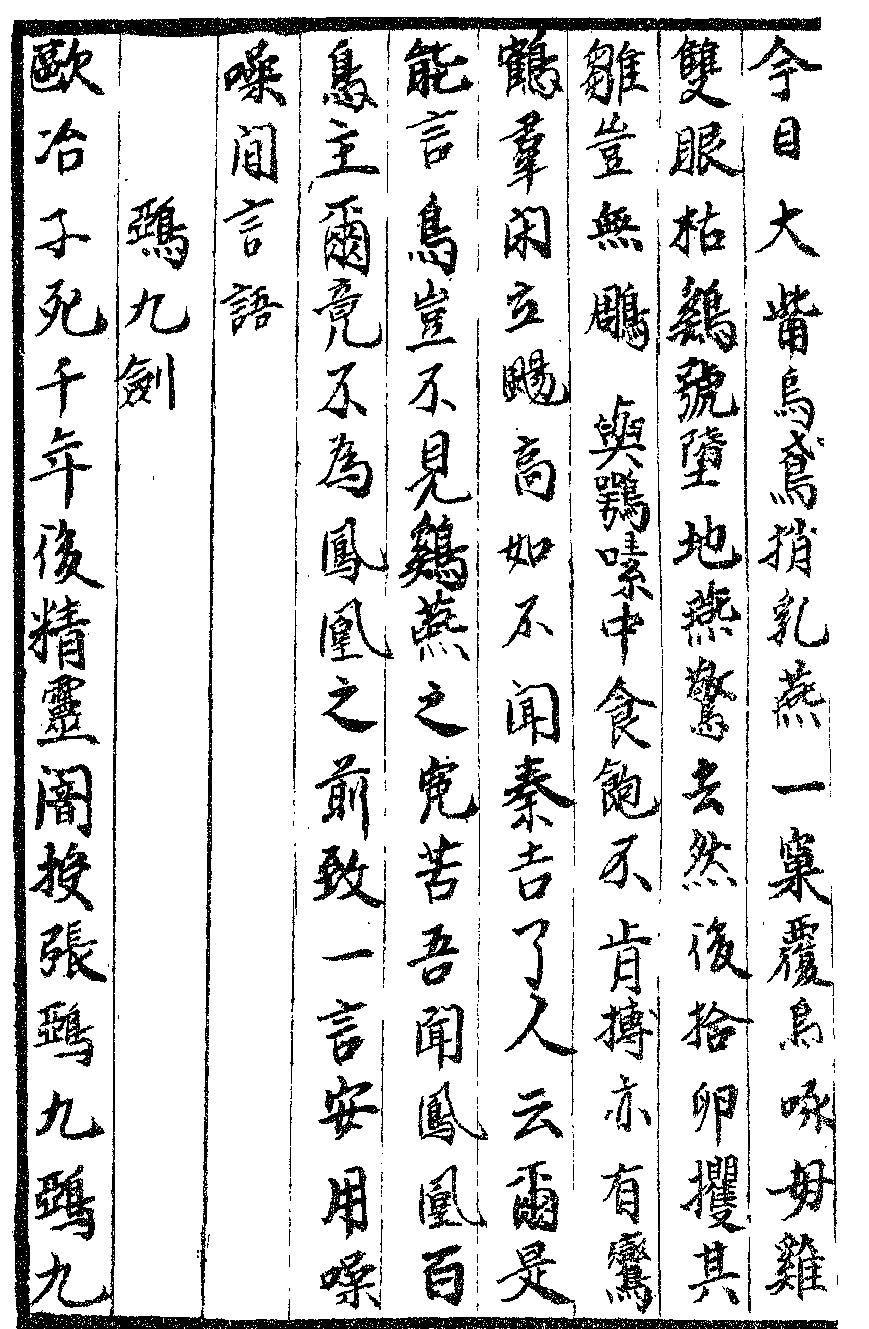 今日大觜烏鳶捎乳燕一窠覆烏啄母雞
雙眼枯鷄號墮地燕驚去然後拾卵攫其
雛豈無鵰與鶚嗉中食飽不肯搏亦有鸞
鶴羣閑立颺高如不聞秦吉了人云爾是
能言鳥豈不見鷄燕之寃苦吾聞鳳凰百
鳥主爾竟不為鳳凰之前致一言安用噪
噪閒言語
鵶九劍
歐冶子死千年後精靈闇授張鵶九鵶九